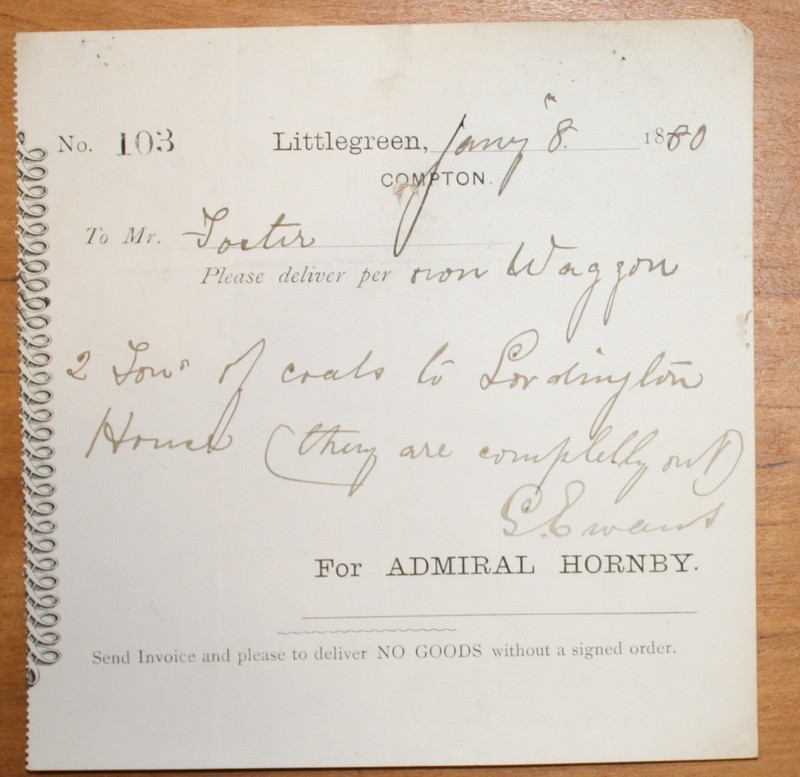 No. 103 Littlegreen, Jany 8. 1880
COMPTON.
To Mr. Foster
Please deliver per own Waggon
2 Tons of coals to Lordington
House (they are completly out)
G. Ewans
For ADMIRAL HORNBY.
Send Invoice and please to deliver NO GOODS without a signed order.